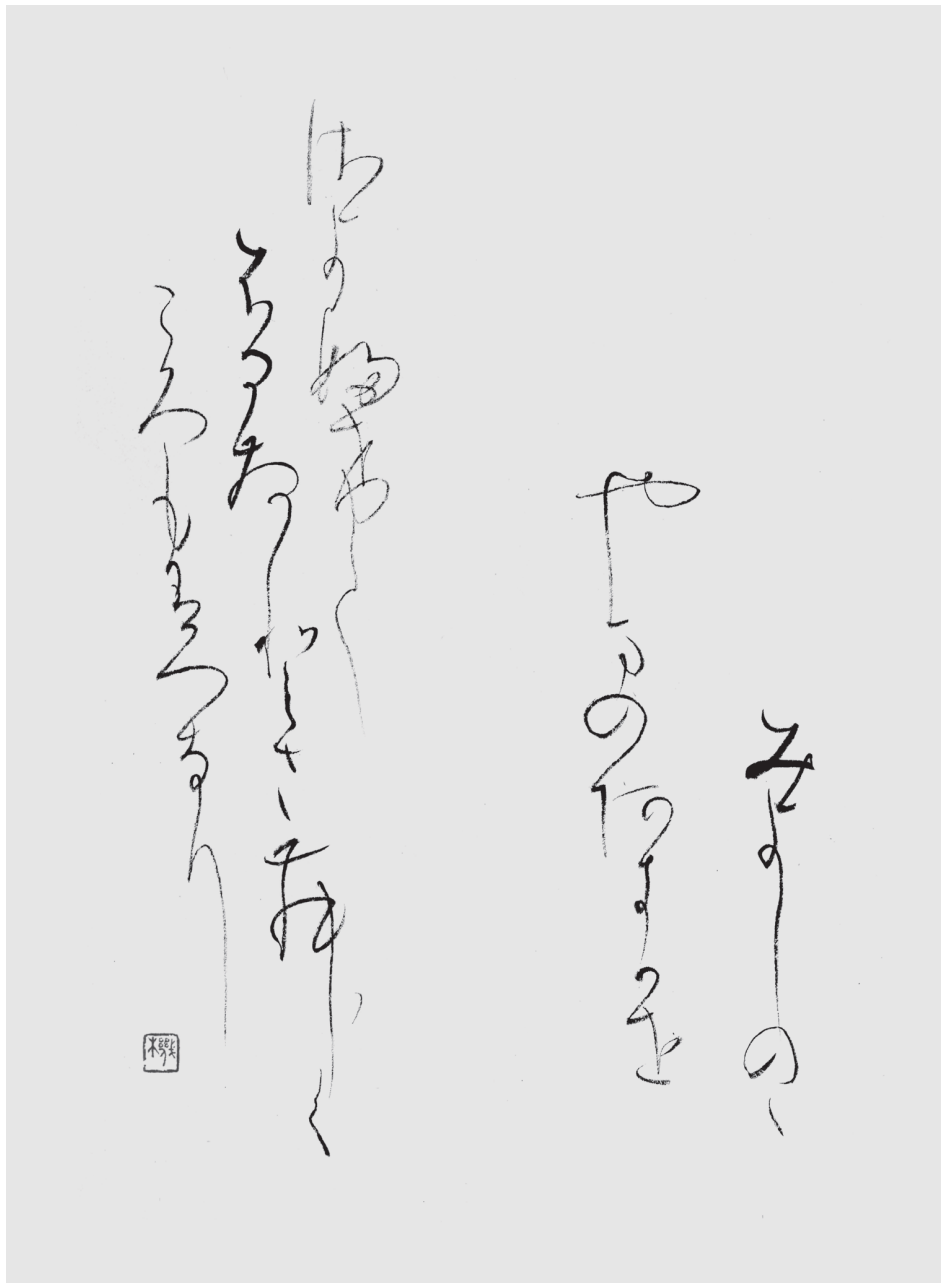 みよしのゝ
やまのあきかせ
さよふけて
ふるさとさむく
ころもうつなり